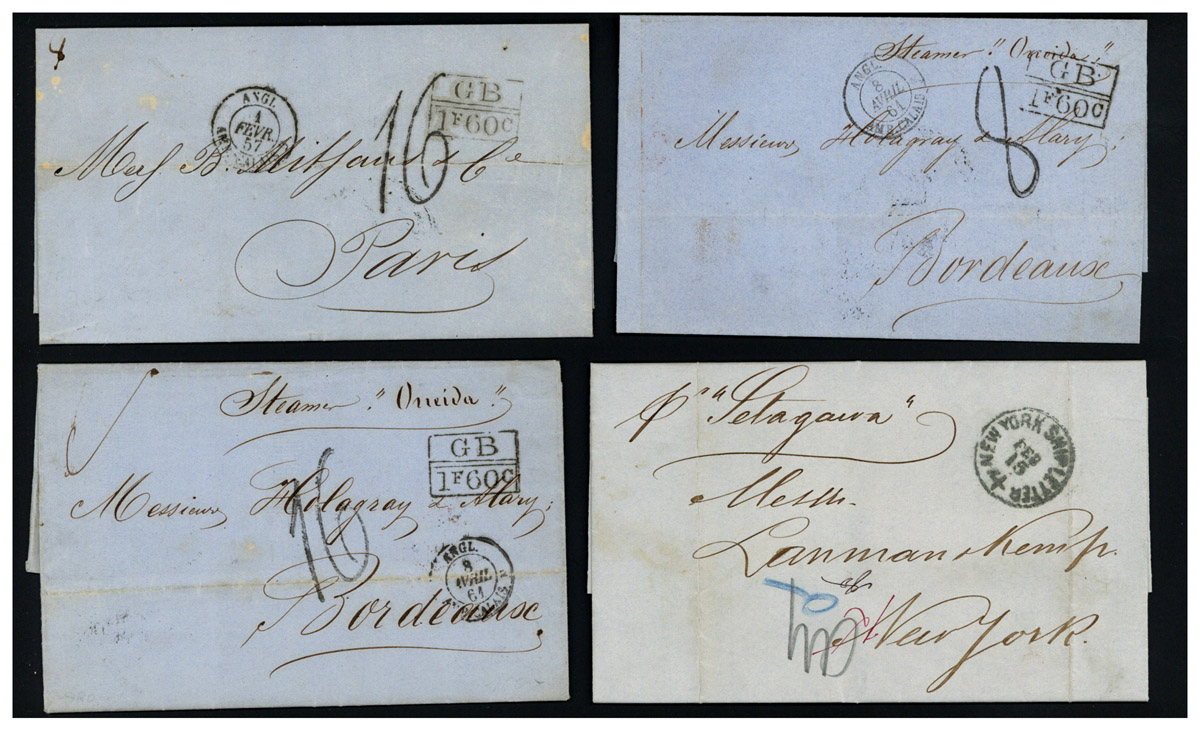 ANGL.
1
FEVR.
57
AMB. CALAIS
16
GB
1F60C
Mess. B. & Ce
Paris
Steamer "Oneida"
ANGL.
8
AVRIL
61
AMB. CALAIS
GB
1F60C
8
Messieurs Holagray & Alary;
Bordeaux
Steamer "Oneida"
GB
1F60C
Messieurs Holagray & Alary;
16
ANGL.
8
AVRIL
61
AMB. CALAIS
Bordeaux.
pr "Setagawa"
NEW YORK SHIP LETTER
FEB
15
4
Messrs.
Lanman & Kemp.
New York.